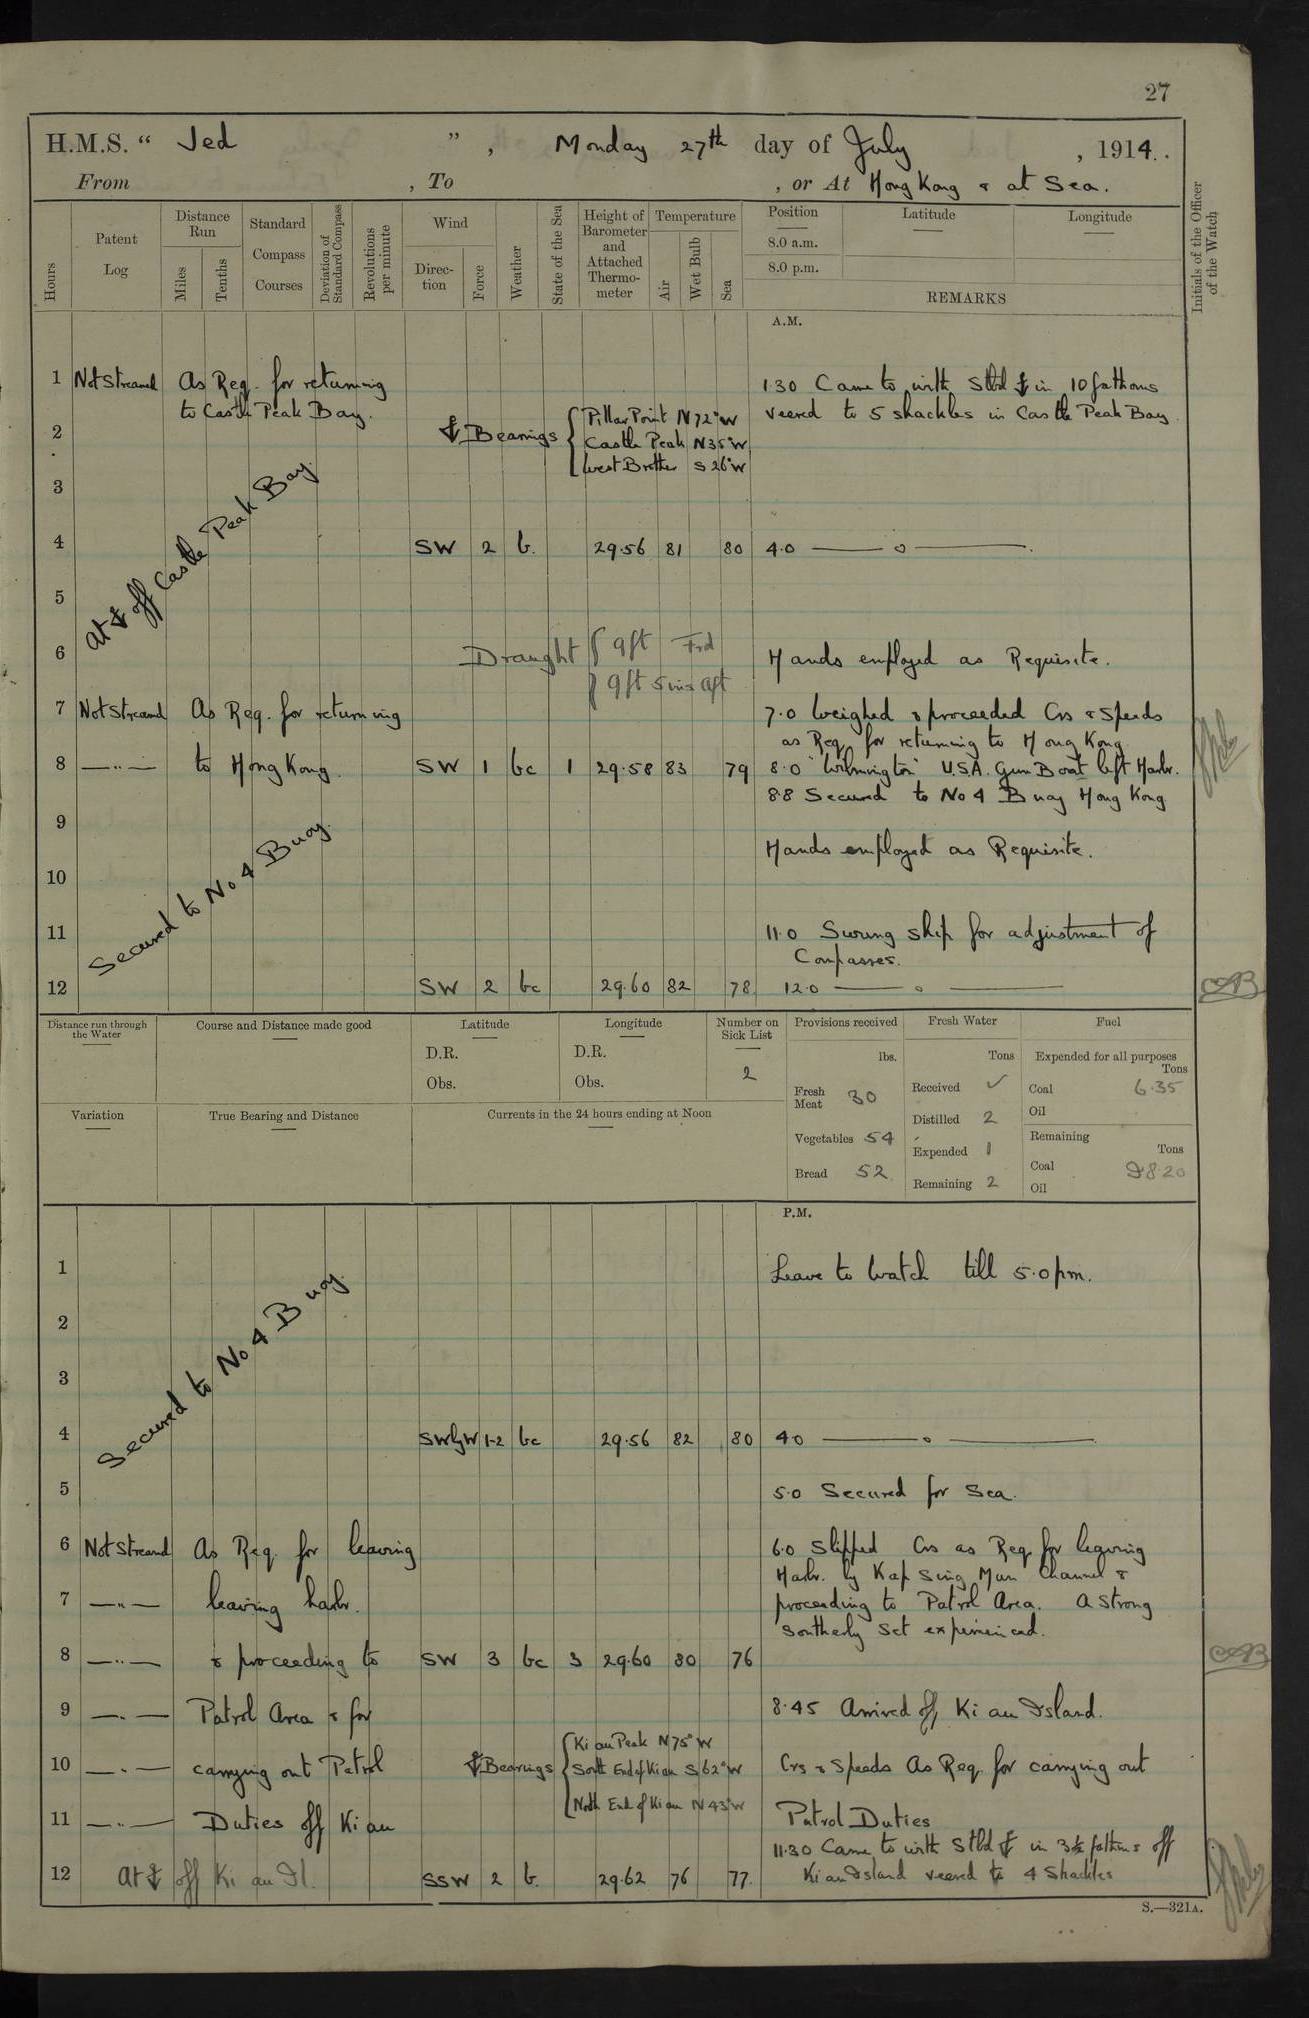 27
H.M.S. “ Jed ” , Monday 27th day of July , 1914.
From , To , or At Hong Kong & at Sea.
Hours
Patent Log
Distance Run
Miles
Tenths
Standard Compass Courses
Deviation of Standard Compass
Revolutions per minute
Wind
Direction
Force
Weather
State of the Sea
Height of Barometer and Attached Thermometer
Temperature
Air
Wet Bulb
Sea
Position
8.0 a.m.
8.0 p.m.
Latitude
Longitude
REMARKS
Initials of the Officer of the Watch
A.M.
1 Not Streamed As Req. for returning 1.30 Came to with Stbd ⚓ in 10 fathoms
to Castle Peak Bay. veered to 5 shackles in Castle Peak Bay.
2 ⚓ Bearings { Pillar Point N 72° W
Castle Peak N 35° W
West Brother S 26° W
3
At ⚓ off Castle Peak Bay.
4 SW 2 b. 29.56 81 80 4.0 —— o ——.
5
6 Draught { 9ft Frd Hands employed as Requisite.
9ft 5ins aft
7 Not Streamd As Req. for returning 7.0 Weighed & proceeded Crs & Speeds
as Req. for returning to Hong Kong
8 —"— to Hong Kong. SW 1 bc 1 29.58 83 79 8.0 "Wilmington" U.S.A. Gun Boat left Harbr.
8.8 Secured to No 4 Buoy Hong Kong
9
Hands employed as Requisite.
10
Secured to No 4 Buoy.
11 11.0 Swung ship for adjustment of
Compasses.
12 SW 2 bc 29.60 82 78 12.0 —— o ——
Distance run through the Water
Course and Distance made good
Latitude
D.R.
Obs.
Longitude
D.R.
Obs.
Number on Sick List
2
Variation
True Bearing and Distance
Currents in the 24 hours ending at Noon
Provisions received
lbs.
Fresh Meat 30
Vegetables 54
Bread 52
Fresh Water
Tons
Received ✓
Distilled 2
Expended 1
Remaining 2
Fuel
Expended for all purposes
Tons
Coal 6.35
Oil
Remaining
Tons
Coal
Oil
P.M.
1 Leave to Watch till 5.0 pm.
2
3
Secured to No 4 Buoy.
4 SWbyW 1-2 bc 29.56 82 80 4.0 —— o ——
5 5.0 Secured for Sea.
6 Not Streamd As Req. for leaving 6.0 Slipped Crs as Req. for leaving
Harbr. by Kap Sing Mun Channel &
7 —"— leaving harbr. proceeding to Patrol Area. A Strong
Southerly Set experienced.
8 —"— & proceeding to SW 3 bc 3 29.60 80 76
9 —"— Patrol Area & for 8.45 Arrived off Ki au Island.
10 —"— carrying out Patrol ⚓ Bearings { Ki au Peak N 75° W
South End of Ki au S 62° W Crs & Speeds As Req. for carrying out
North End of Ki au N 43° W
11 —"— Duties off Ki au Patrol Duties
11.30 Came to with Stbd ⚓ in 3½ fathoms off
12 At ⚓ off Ki au Isl. SSW 2 b. 29.62 76 77. Ki au Island veered to 4 Shackles
S.—321A.